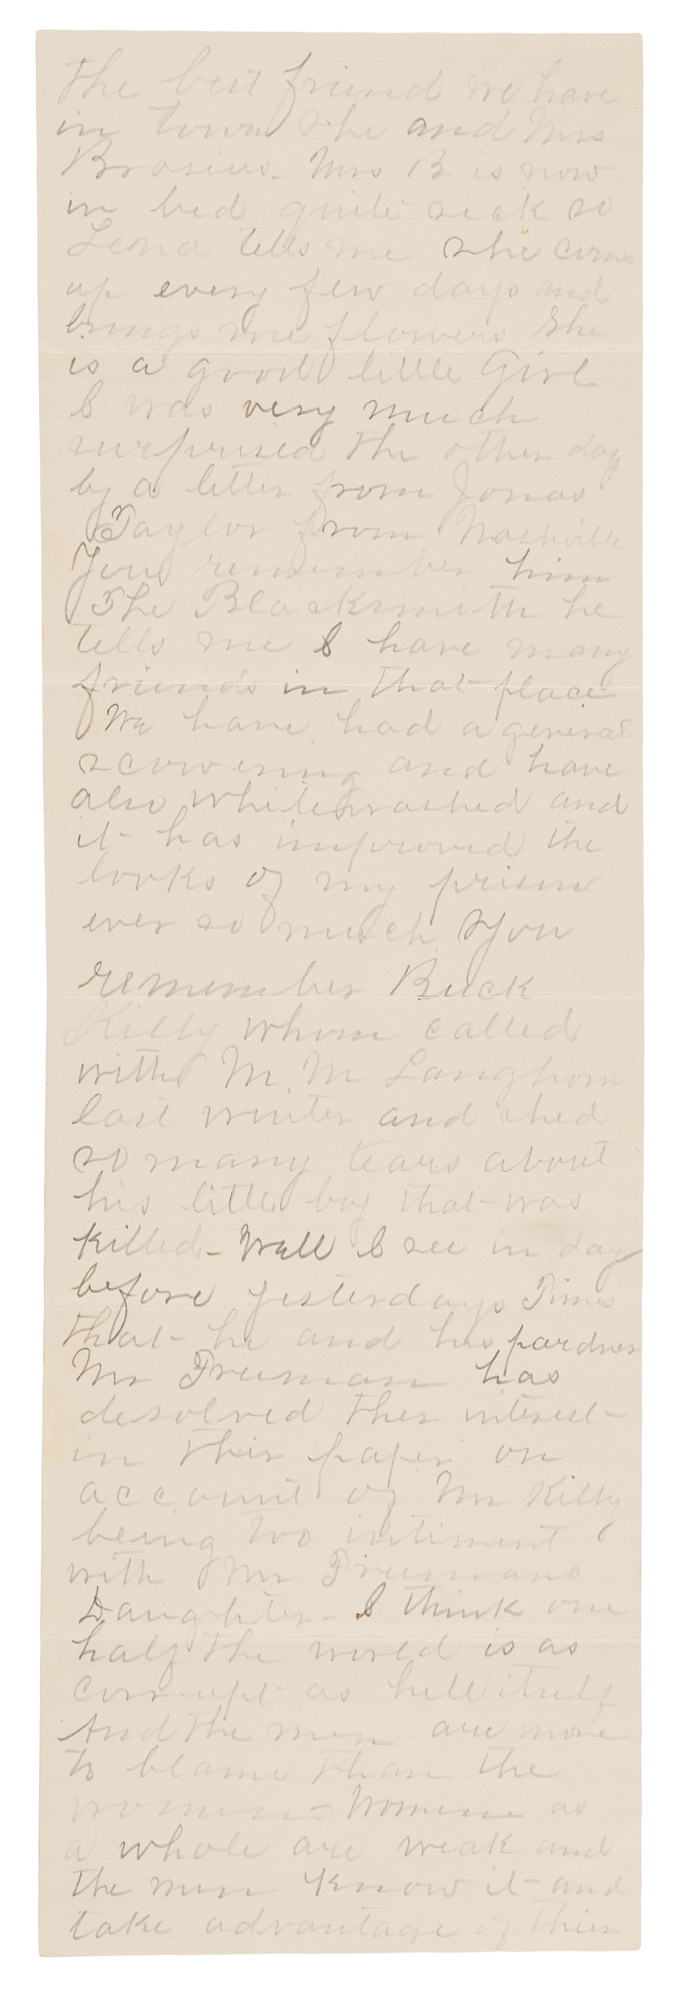 the best friend we have
in town she and Mrs
Brosius. Mrs B. is now
in bed quite sick so
Lena tells me she coms
up every few days and
brings me flowers She
is a good little Girl
I was very much
surprised the other day
by a letter from Jonas
Taylor from Nashville
You remember him
The Blacksmith he
tells me I have many
friends in that place
We have had a general
scowering and have
also whitewashed and
it has improved the
looks of my prison
ever so much You
remember Buck
Kilty whom called
with M. M Langhorn
last winter and shed
so many tears about
his little boy that was
killed - Well I see in day
before yesterdays Times
that he and his pardner
Mr Freeman has
desolved ther interest
in their paper on
account of Mr Kilty
being too intiment
with Mr Freemans
Daughter - I think one
half the world is as
corrupt as hell itself
And the men are more
to blame than the
women - Women as
a whole are weak and
the men know it and
take advantage of thier